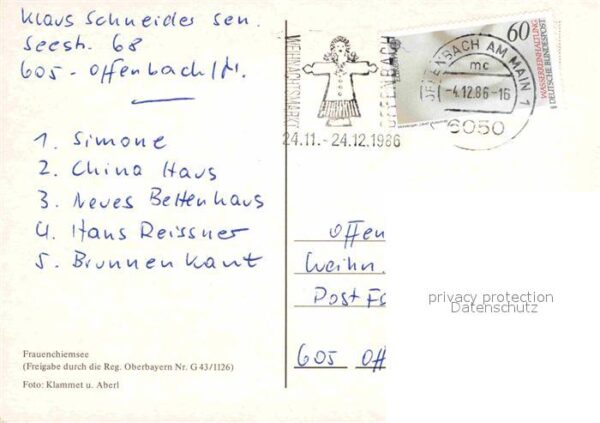 Klaus Schneider sen.
Seestr. 68
605 - Offenbach/M.
1. Simone
2. China Haus
3. Neues Bettenhaus
4. Hans Reissner
5. Brunnen Kant
Frauenchiemsee
(Freigabe durch die Reg. Oberbayern Nr. G 43/1126)
Foto: Klammet u. Aberl
WEIHNACHTSMARKT
OFFENBACH
24.11. - 24.12.1986
OFFENBACH AM MAIN 1
mc
-4.12.86-16
6050
60
WASSERREINHALTUNG
DEUTSCHE BUNDESPOST
Offen
Weihn.
Post Fa
605 Off
privacy protection
Datenschutz